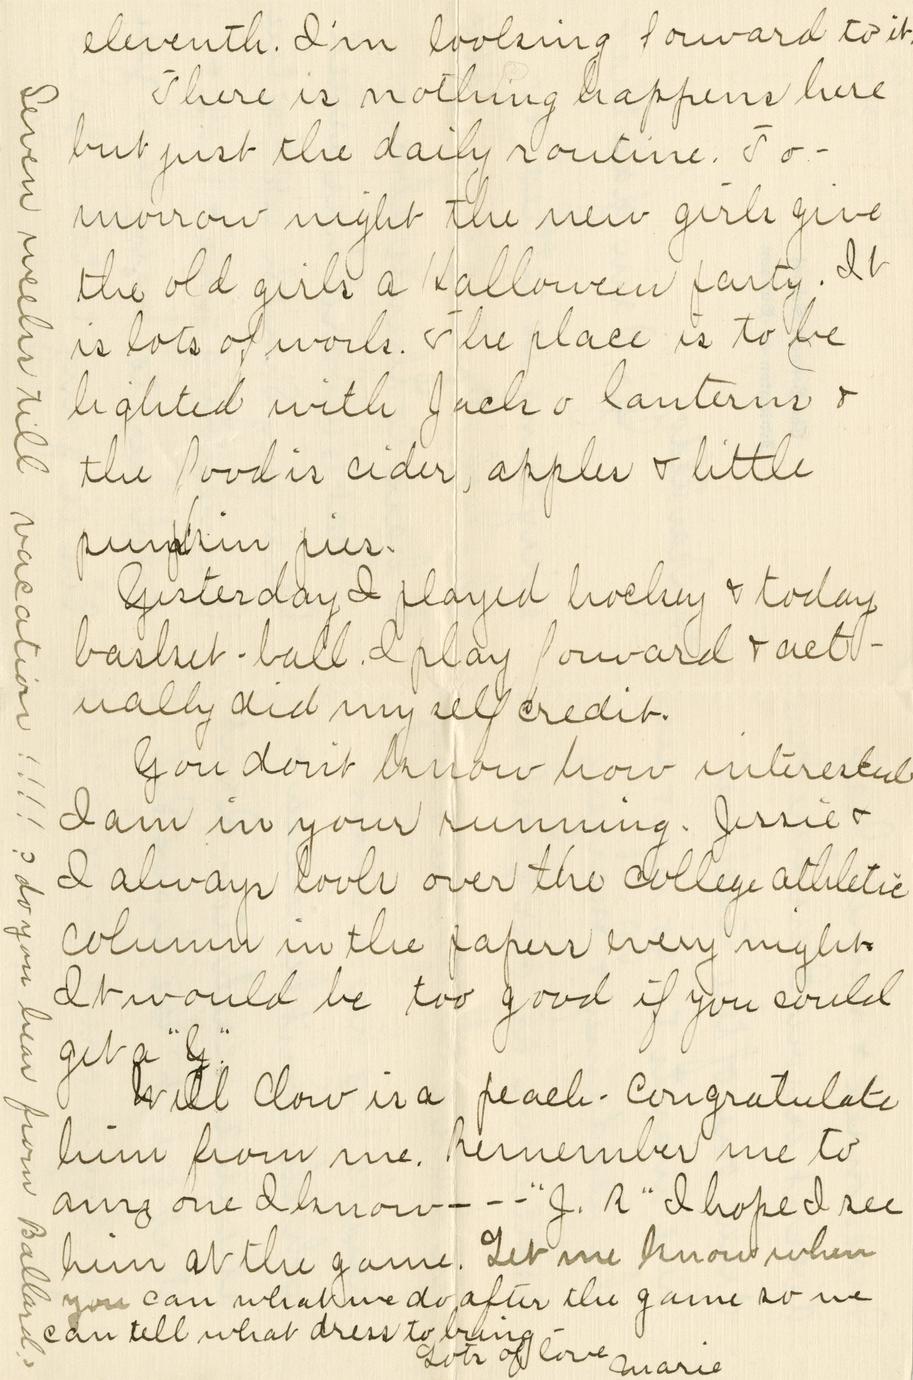 eleventh. I'm looking forward to it.
There is nothing happens here
but just the daily routine. To-
morrow night the new girls give
the old girls a Halloween party. It
is lots of work. The place is to be
lighted with Jack o lanterns &
the food is cider, apples & little
pumpkin pies.
Yesterday I played hockey & today
basket-ball. I play forward & act-
ually did my self credit.
You don't know how interested
I am in your running. Jessie &
I always look over the college athletic
column in the papers every night.
It would be too good if you could
get a "Y."
Will Clow is a peach - Congratulate
him from me. Remember me to
any one I know--- "J. R" I hope I see
him at the game. Let me know when
you can what we do after the game so we
can tell what dress to bring -
Lots of love Marie
Seven weeks till vacation!!!! ? do you hear from Ballard?